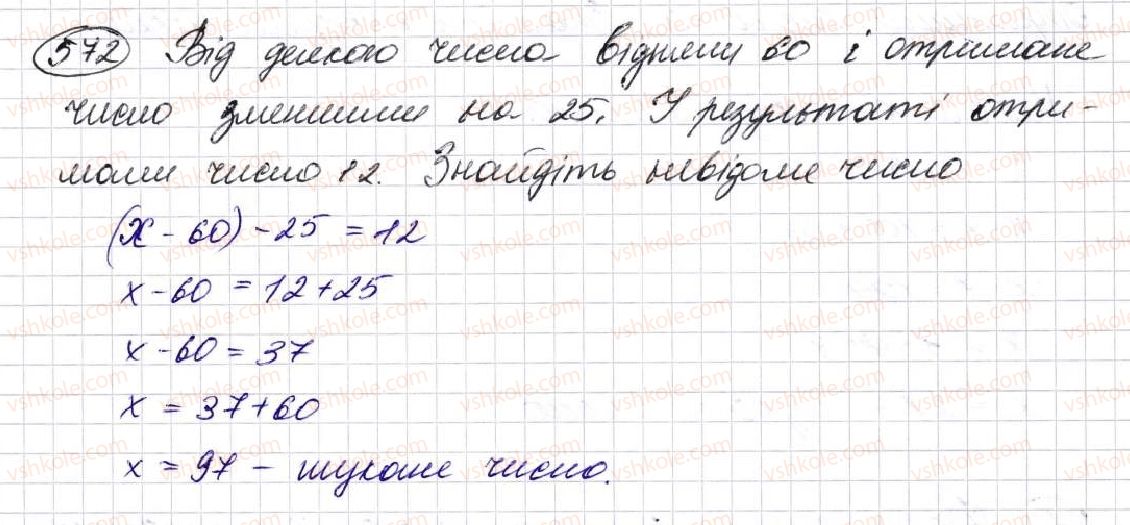 572 Від деякого числа відняли 60 і отримане
число зменшили на 25. У результаті отри-
мали число 12. Знайдіть невідоме число
(x - 60) - 25 = 12
x - 60 = 12 + 25
x - 60 = 37
x = 37 + 60
x = 97 - шукане число.